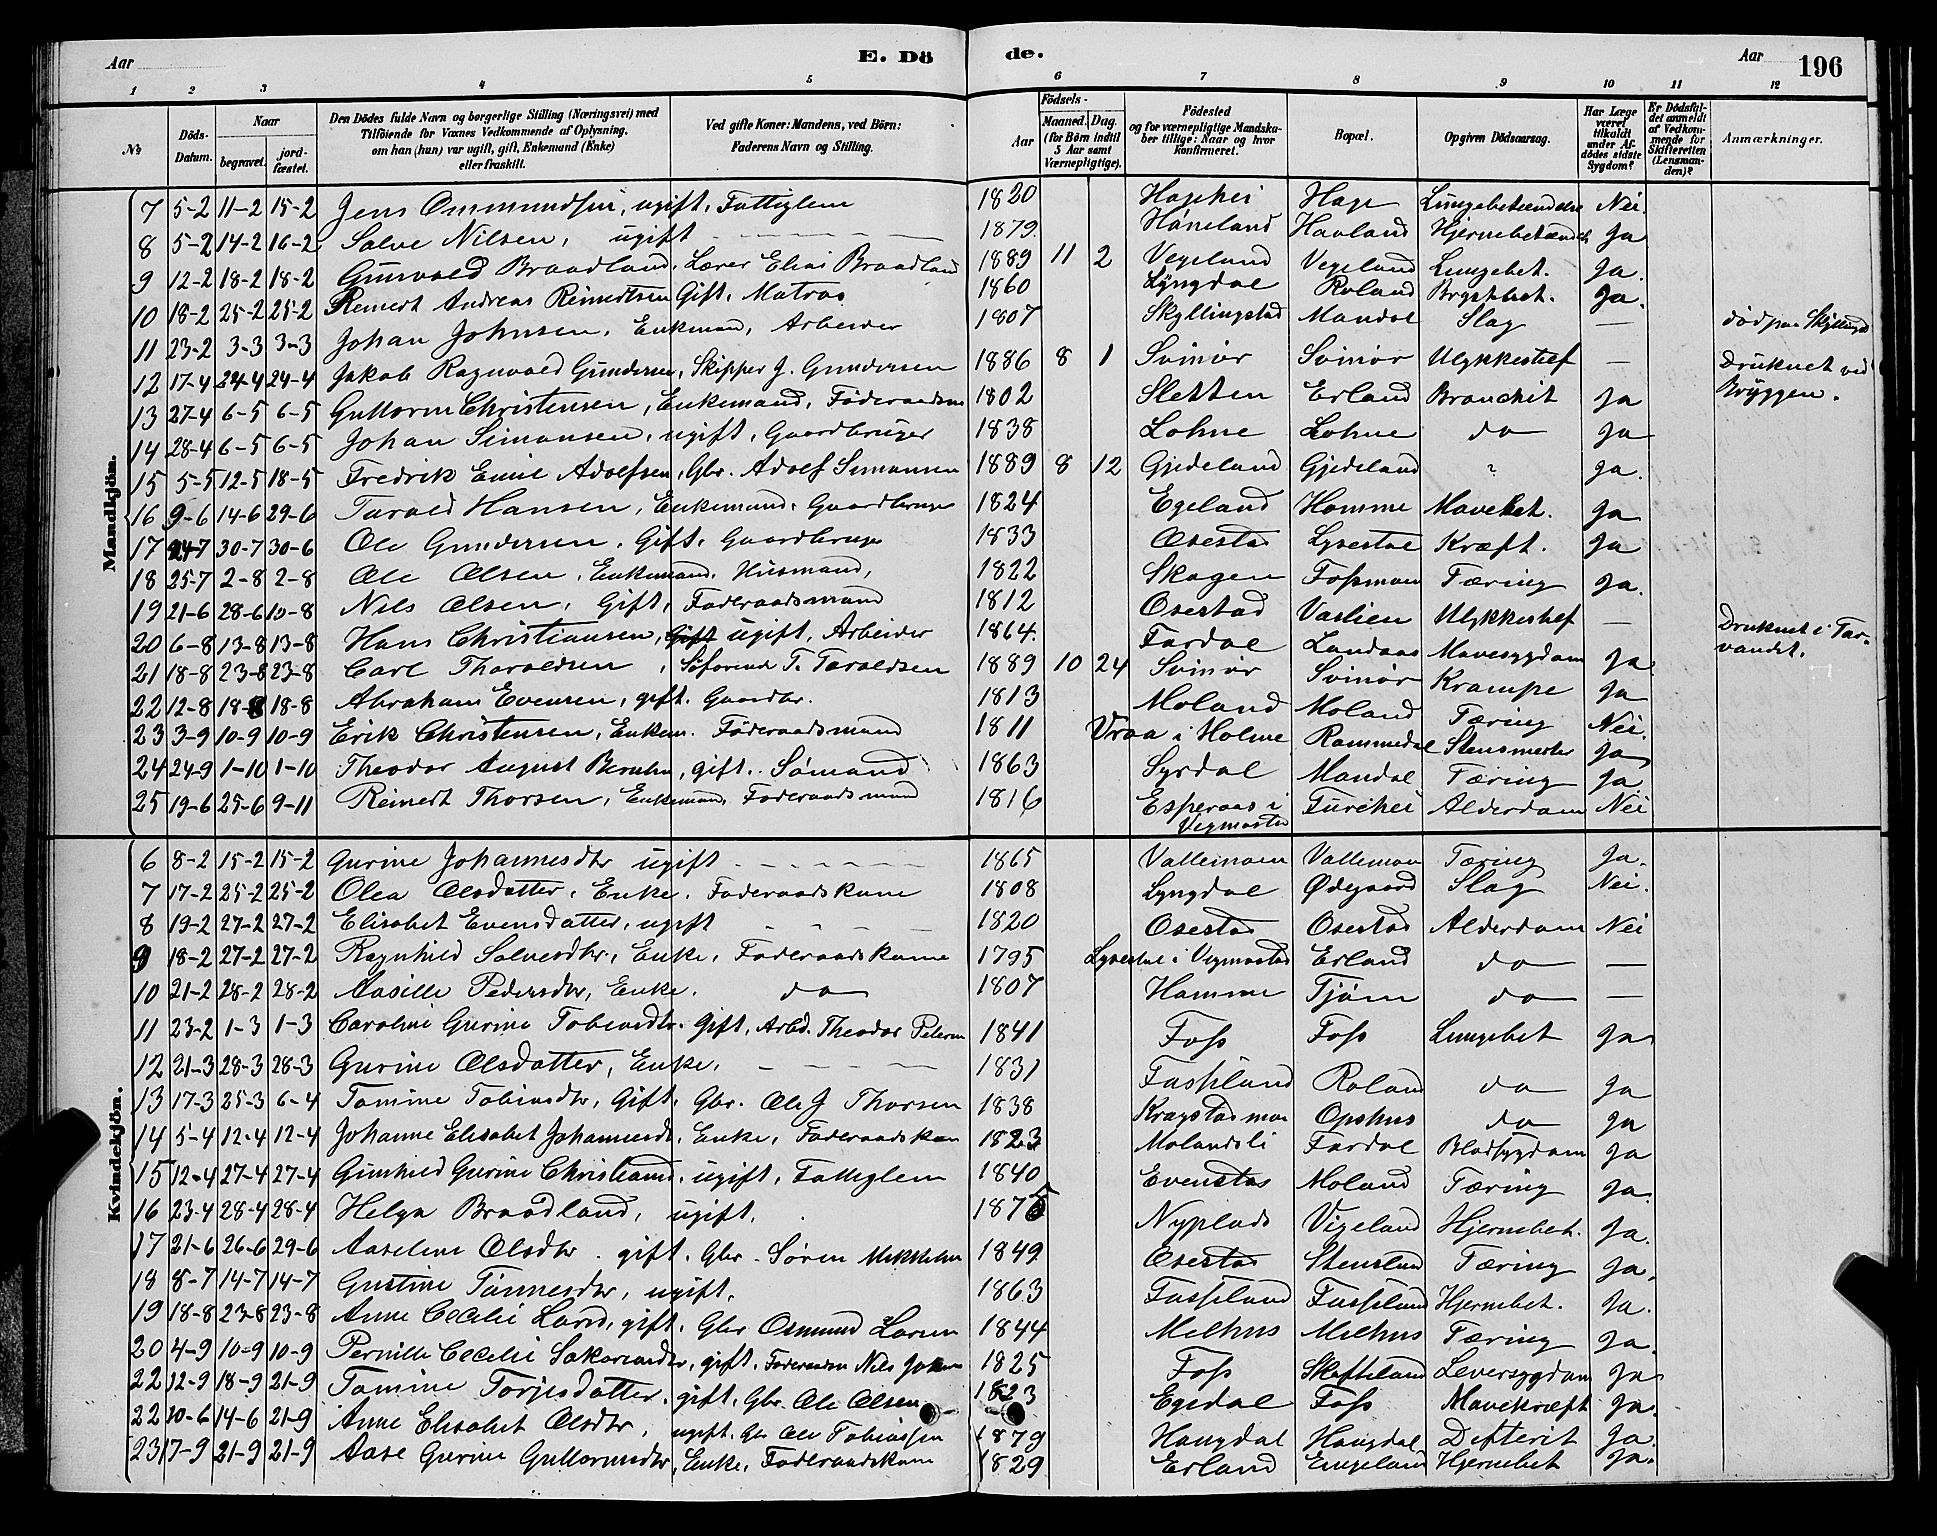 Aar E. Dö de. Aar 196
1 2 3 4 5 6 7 8 9 10 11 12
№ Döds-Datum. Naar begravet. jordfæstet. Den Dödes fulde Navn og borgerlige Stilling (Næringsvei) med Tilföiende for Voxnes Vedkommende af Oplysning, om han (hun) var ugift, gift, Enkemand (Enke) eller fraskilt. Ved gifte Koner: Mandens, ved Börn: Faderens Navn og Stilling. Födsels- Aar Maaned. Dag. (for Börn indtil 5 Aar samt Værnepligtige). Födested og for værnepligtige Mandskaber tillige: Naar og hvor konfirmeret. Bopæl. Opgiven Dödsaarsag. Har Læge været tilkaldt under Afdödes sidste Sygdom? Er Dödsfaldet anmeldt af Vedkommende for Skifteretten (Lensmanden)? Anmærkninger.
Mandkjön.
7 5-2 11-2 15-2 Jens Ommundsen, ugift, Fattiglem 1820 Hagehei Hage Lungebetændelse Nei.
8 5-2 14-2 16-2 Salve Nilsen, ugift 1879. Höneland Havland Hjernebetænd. Ja
9 12-2 18-2 18-2 Gunvald Braadland, Lærer Elias Braadland 1889 11 2 Vegeland Vegeland Lungebet. Ja.
10 18-2 25-2 25-2 Reinert Andreas Reinertsen Gift, Matros 1860 Lyngdal Roland Brystbet. Ja.
11 23-2 3-3 3-3 Johan Johnsen, Enkemand, Arbeider 1807 Skyllingstad Mandal Slag — död paa Skyllingst
12 17-4 24-4 24-4 Jakob Ragnvald Gundersen, Skipper J. Gundersen 1886 8 1 Svinör Svinör Ulykkestilf — Druknet ved Bryggen.
13 27-4 6-5 6-5 Guttorm Christensen, Enkemand, Föderaadsm 1802 Sletten Erland Bronchit Ja
14 28-4 6-5 6-5 Johan Simonsen, ugift, Gaardbruger 1838 Lohne Lohne do Ja
15 5-5 12-5 18-5 Fredrik Emil Adolfsen, Gbr. Adolf Simonsen 1889 8 12 Gjedeland Gjedeland ? Ja.
16 9-6 14-6 29-6 Tarald Hansen, Enkemand, Gaardbruger 1824 Egeland Homme Mavebet. Ja
17 24-7 30-7 30-6 Ole Gundersen, Gift, Gaardbruger 1833 Osestad Lysestøl Kræft. Ja
18 25-7 2-8 2-8 Ole Olsen, Enkemand, Husmand, 1822 Skagen Fossmoen Tæring Ja.
19 21-6 28-6 10-8 Nils Olsen, Gift, Föderaadsmand 1812 Osestad Vaslien Ulykkestilf — Druknet i Tarvandet.
20 6-8 13-8 13-8 Hans Christiansen, Gift ugift, Arbeider 1864. Fardal Landaas Mavesygdom Ja
21 18-8 23-8 23-8 Carl Tharaldsen, Söformd T. Taraldsen 1889 10 24 Svinör Svinör Krampe Ja
22 12-8 18-8 18-8 Abraham Evensen, gift. Gaardbr. 1813 Moland Moland Tæring Nei.
23 3-9 10-9 10-9 Erik Christensen, Enkem. Föderaadsmand 1811 Vraa i Holme Rommedal Stensmerter Ja
24 24-9 1-10 1-10 Theodor August Bernhn, gift. Sömand 1863 Syrdal Mandal Tæring Ja
25 19-6 25-6 9-11 Reinert Thorsen, Enkemand, Föderaadsmand 1816 Esperaas i Vegmostad Furehei Alderdom Nei
Kvindekjön.
6 8-2 15-2 15-2 Gurine Johannesdtr ugift 1865 Vallemoen Vallemoen Tæring Ja.
7 17-2 25-2 25-2 Olea Olsdatter, Enke. Föderaadskone 1808 Lyngdal Ødegaard Slag Nei.
8 19-2 27-2 27-2 Elisabet Evensdatter, ugift 1820 Osestad Osestad Alderdom Nei
9 18-2 27-2 27-2 Ragnhild Salvesdtr, Enke, Föderaadskone 1795 Lysestøl i Vegmostad Erland do —
10 21-2 28-2 28-2 Aasille Pedersdtr, Enke. do 1807 Homme Tjöm do —
11 23-2 1-3 1-3 Caroline Gurine Tobiasdtr. Gift, Arbd. Theodor Petersen 1841 Foss Foss Lungebet Ja
12 21-3 28-3 28-3 Gurine Olsdatter, Enke. 1831 Fuskeland Roland do Ja
13 17-3 25-3 6-4 Tomine Tobiasdtr, Gift, Gbr. Ole J Thorsen 1838 Kragstadmoen Opshus do Ja
14 5-4 12-4 12-4 Johanne Elisabet Johannesdtr. Enke, Föderaadskon 1823 Molandsli Fardal Blodsygdom Ja
15 12-4 27-4 27-4 Gunhild Gurine Christiansd. ugift, Fattiglem 1840 Evenstad Moland Tæring Ja.
16 23-4 28-4 28-4 Helga Braadland, ugift. 1875 Nyplads Vigeland Hjernebet. Ja.
17 21-6 26-6 29-6 Aaselene Olsdtr. gift. Gbr. Sören Mikkelsen 1849 Osestad Stensland Tæring Ja.
18 8-7 14-7 14-7 Gustine Tönnesdtr, ugift. 1863 Fuskeland Fuskeland Hjernebet. Ja.
19 18-8 23-8 23-8 Anne Cecilie Larsd, gift. Gbr Osmund Larsen 1844 Melhus Melhus Tæring Ja.
20 4-9 10-9 10-9 Pernille Cecilie Sakariasdtr, gift, Föderaadsm Nils Johnsen 1825 Foss Skofteland Leversygdom Ja
22 12-9 18-9 21-9 Tomine Torjesdatter. gift. Gbr. Ole Olsen 1823 Egedal Foss Mavekræft Ja.
22 10-6 14-6 21-9 Anne Elisabet Olsdtr, ugift. Gbr Ole Tobiassen 1879 Haugdal Haugdal Difterit Ja.
23 17-9 21-9 21-9 Aase Gurine Guttormsdtr, Enke, Föderaadskone 1829 Erland Eingeland Hjernebet Ja.